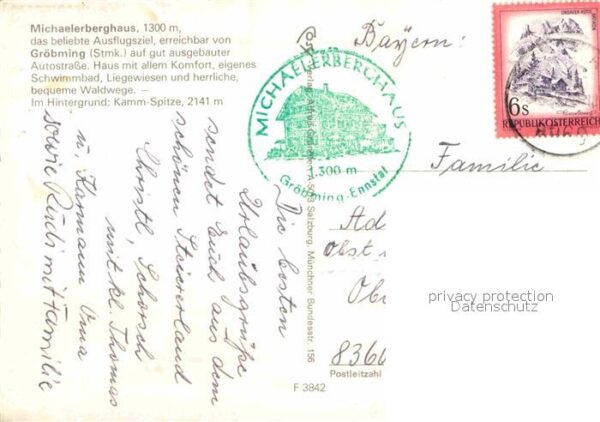 Michaelerberghaus, 1300 m,
das beliebte Ausflugsziel, erreichbar von
Gröbming (Stmk.) auf gut ausgebauter
Autostraße. Haus mit allem Komfort, eigenes
Schwimmbad, Liegewiesen und herrliche,
bequeme Waldwege. –
Im Hintergrund: Kamm-Spitze, 2141 m
Die besten
Urlaubsgrüße
sendet Euch aus dem
schönen Steirerland
Christl, Schorsch
mit kl. Thomas
u. Oma
sowie Rudi mit Familie
MICHAELERBERGHAUS
1.300 m
Gröbming-Ennstal
Salzburg, Münchner Bundesstr. 156
F 3842
Bayern:
Familie
Ad
Obst
Ob
8360
Postleitzahl
privacy protection
Datenschutz
6s
REPUBLIK ÖSTERREICH